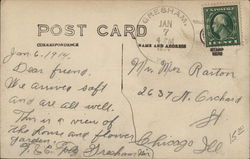 POST CARD
GRESHAM,
JAN
7
CORRESPONDENCE
NAME AND ADDRESS
Jan. 6, 1914.
Dear friend.
We arrived saft
and are all well.
This is a view of
the home and flower
garden.
Gresham
Mr. Mrs Raston
2637 N. Orchard
St
Chicago Ill